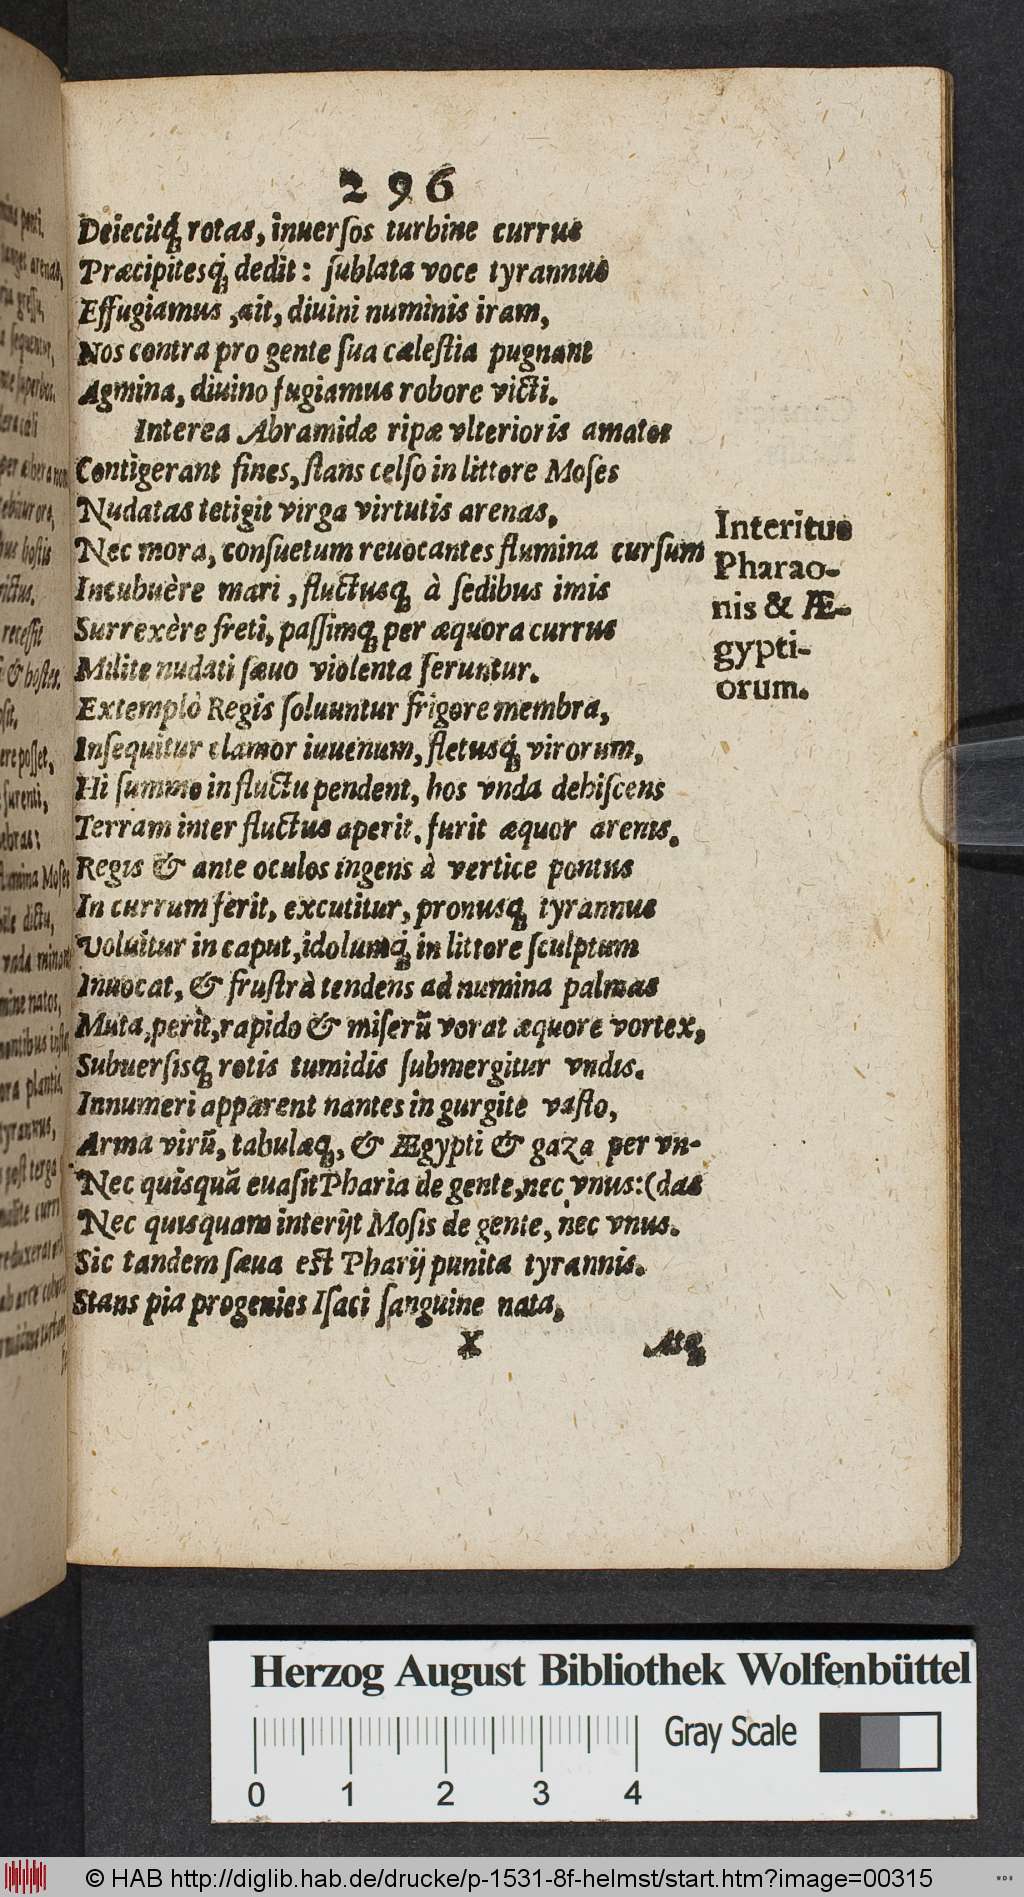 296
Deiecitq́; rotas, inuerſos turbine currus
Præcipitesq́; dedit: ſublata voce tyrannus
Effugiamus ,ait, diuini numinis iram,
Nos contra pro gente ſua cæleſtia pugnant
Agmina, diuino fugiamus robore victi.
Interea Abramidæ ripæ vlterioris amatos
Contigerant fines, ſtans celſo in littore Moſes
Nudatas tetigit virga virtutis arenas.
Nec mora, conſuetum reuocantes flumina curſum
Incubuère mari, fluctusq; à ſedibus imis
Surrexère freti, paſſimq; per æquora currus
Milite nudati ſæuo violenta feruntur.
Extemplò Regis ſoluuntur frigore membra,
Inſequitur clamor iuuenum, fletusq́; virorum,
Hi ſummo in fluctu pendent, hos vnda dehiſcens
Terram inter fluctus aperit. furit æquor arenis.
Regis & ante oculos ingens à vertice pontus
In currum ferit, excutitur, pronusq; tyrannus
Voluitur in caput, idolumq́; in littore ſculptum
Inuocat, & fruſtrà tendens ad numina palmas
Muta, perit, rapido & miſerũ vorat æquore vortex,
Subuerſisq; rotis tumidis ſubmergitur vndis.
Innumeri apparent nantes in gurgite vaſto,
Arma virũ, tabulæq;, & Ægypti & gaza per vn-
Nec quisquã euaſit Pharia de gente, nec vnus: (das
Nec quisquam interijt Moſis de gente, nec vnus.
Sic tandem ſæua eſt Pharij punita tyrannis.
Stans pia progenies Iſaci ſanguine nata,
X Atq;
Interitus
Pharao-
nis & Æ-
gypti-
orum.
Herzog August Bibliothek Wolfenbüttel
Gray Scale
0 1 2 3 4
© HAB http://diglib.hab.de/drucke/p-1531-8f-helmst/start.htm?image=00315